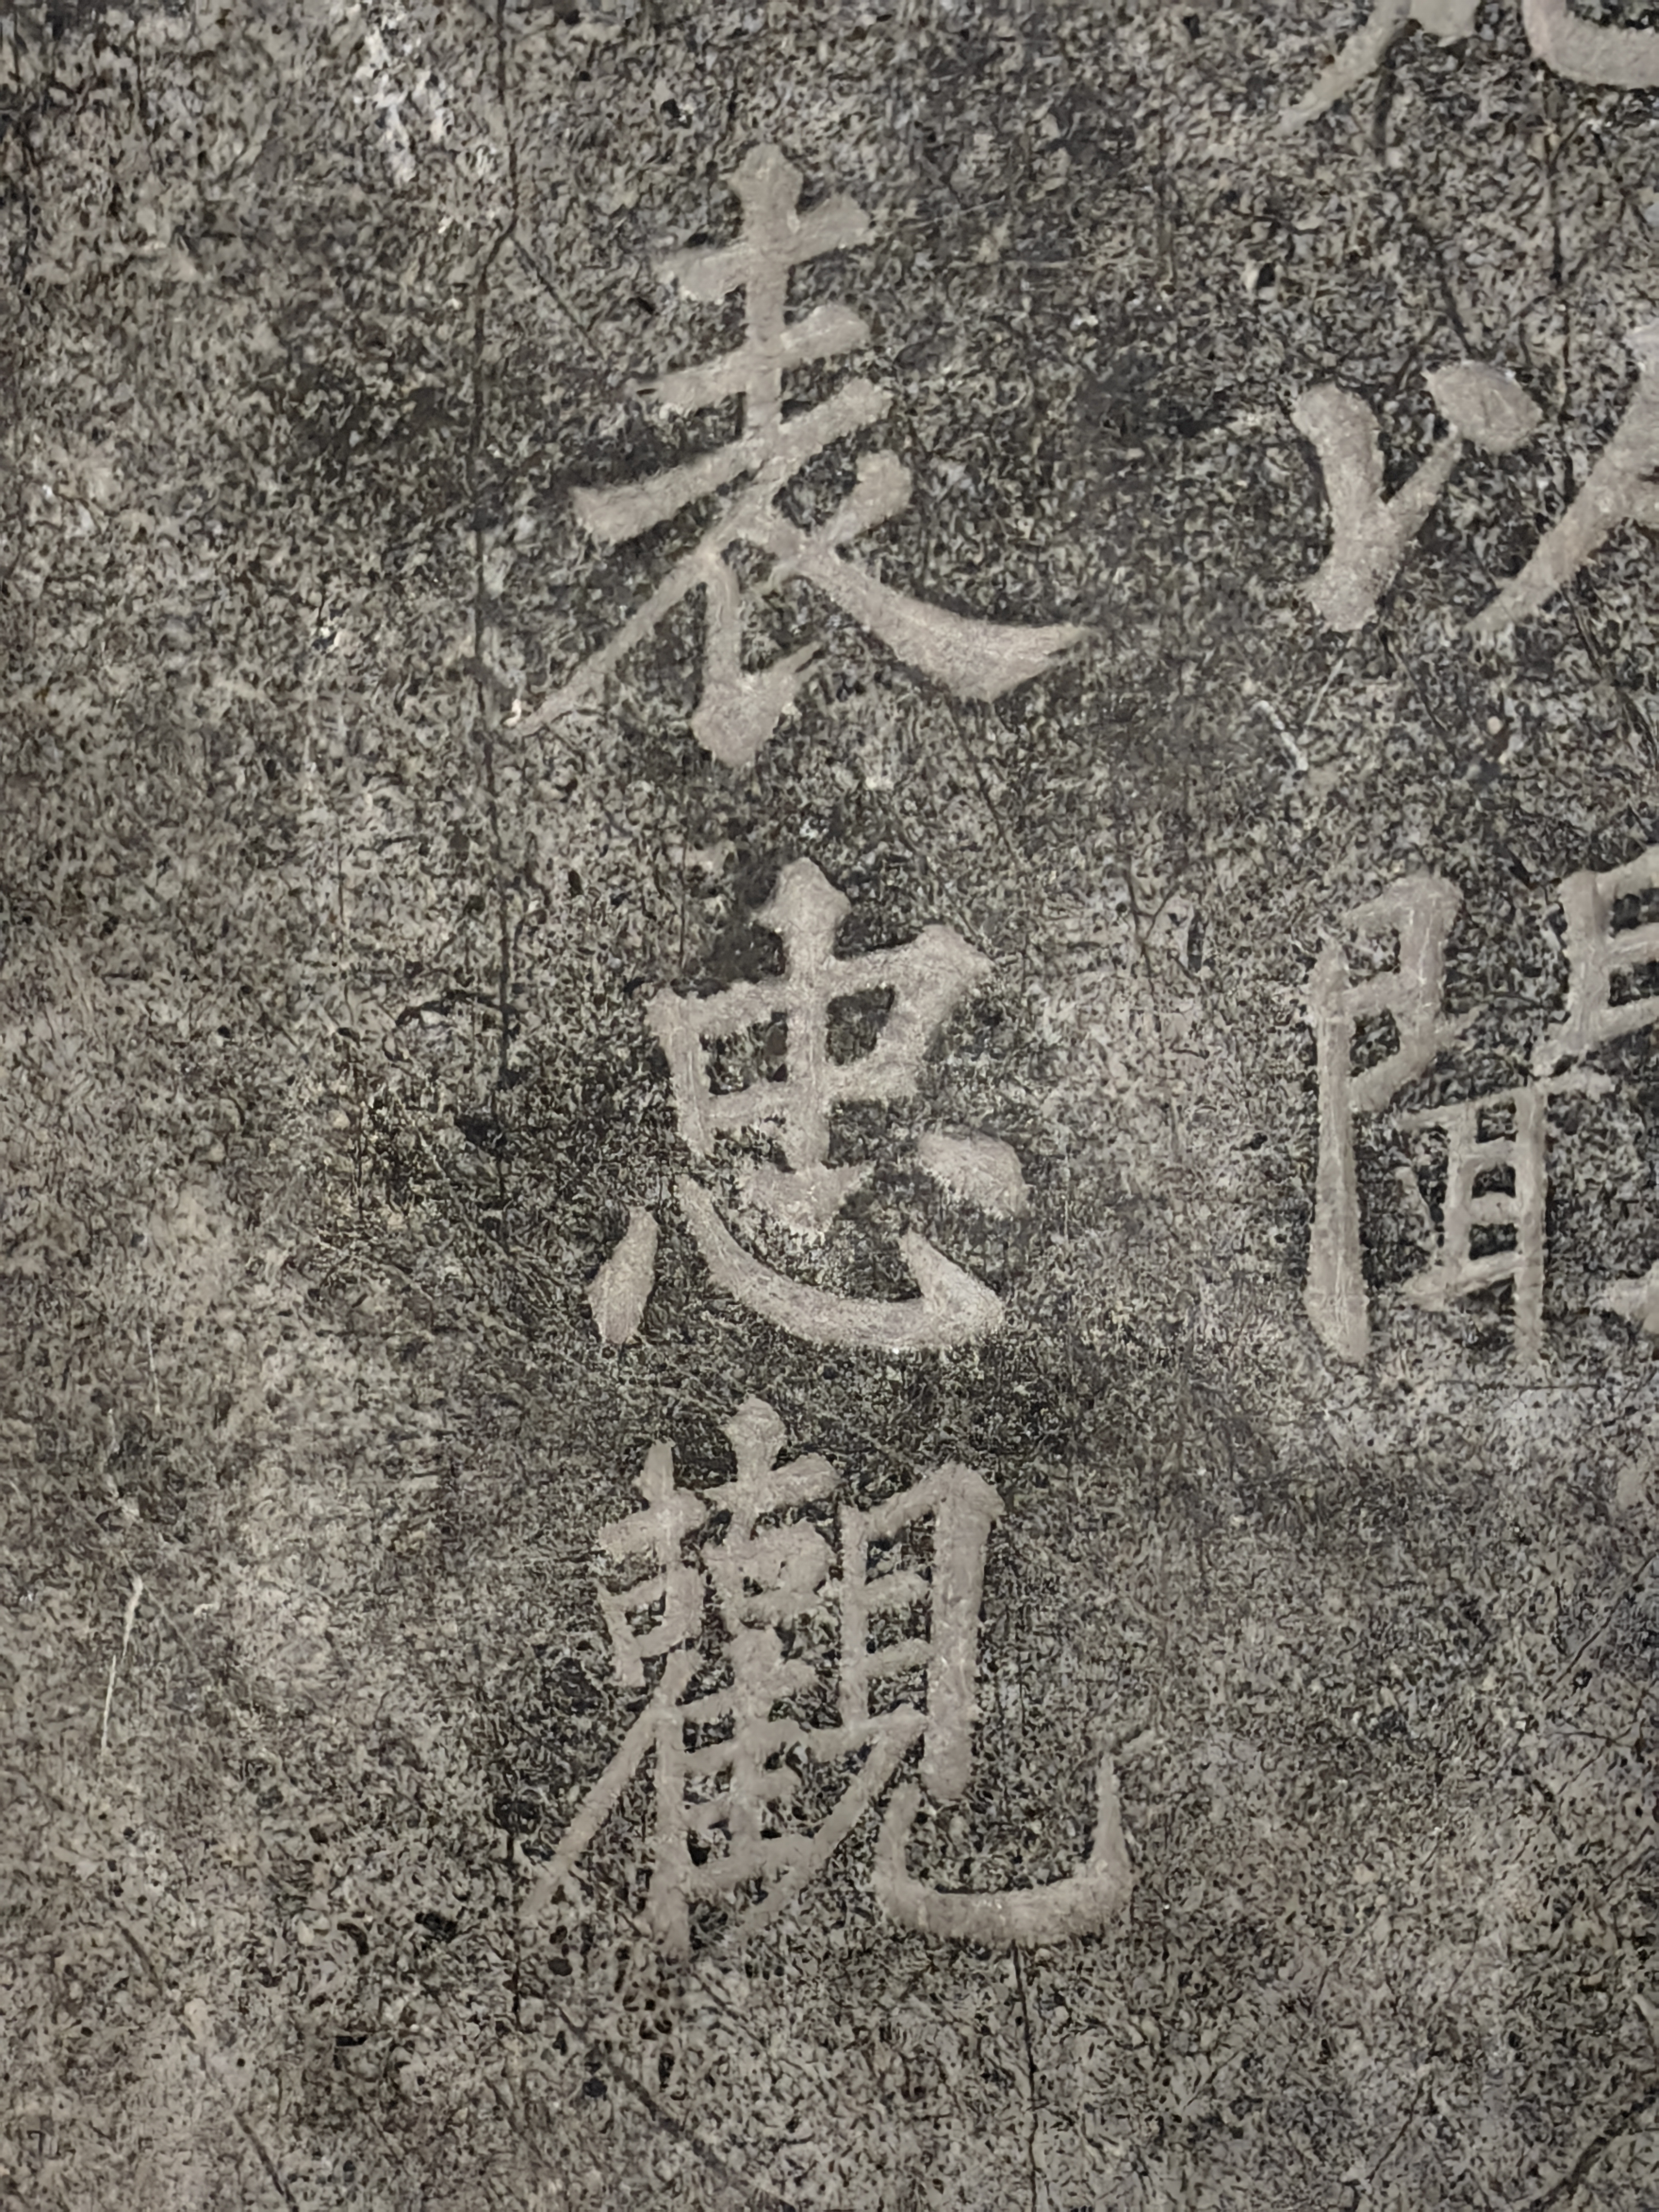 以聞
表忠觀